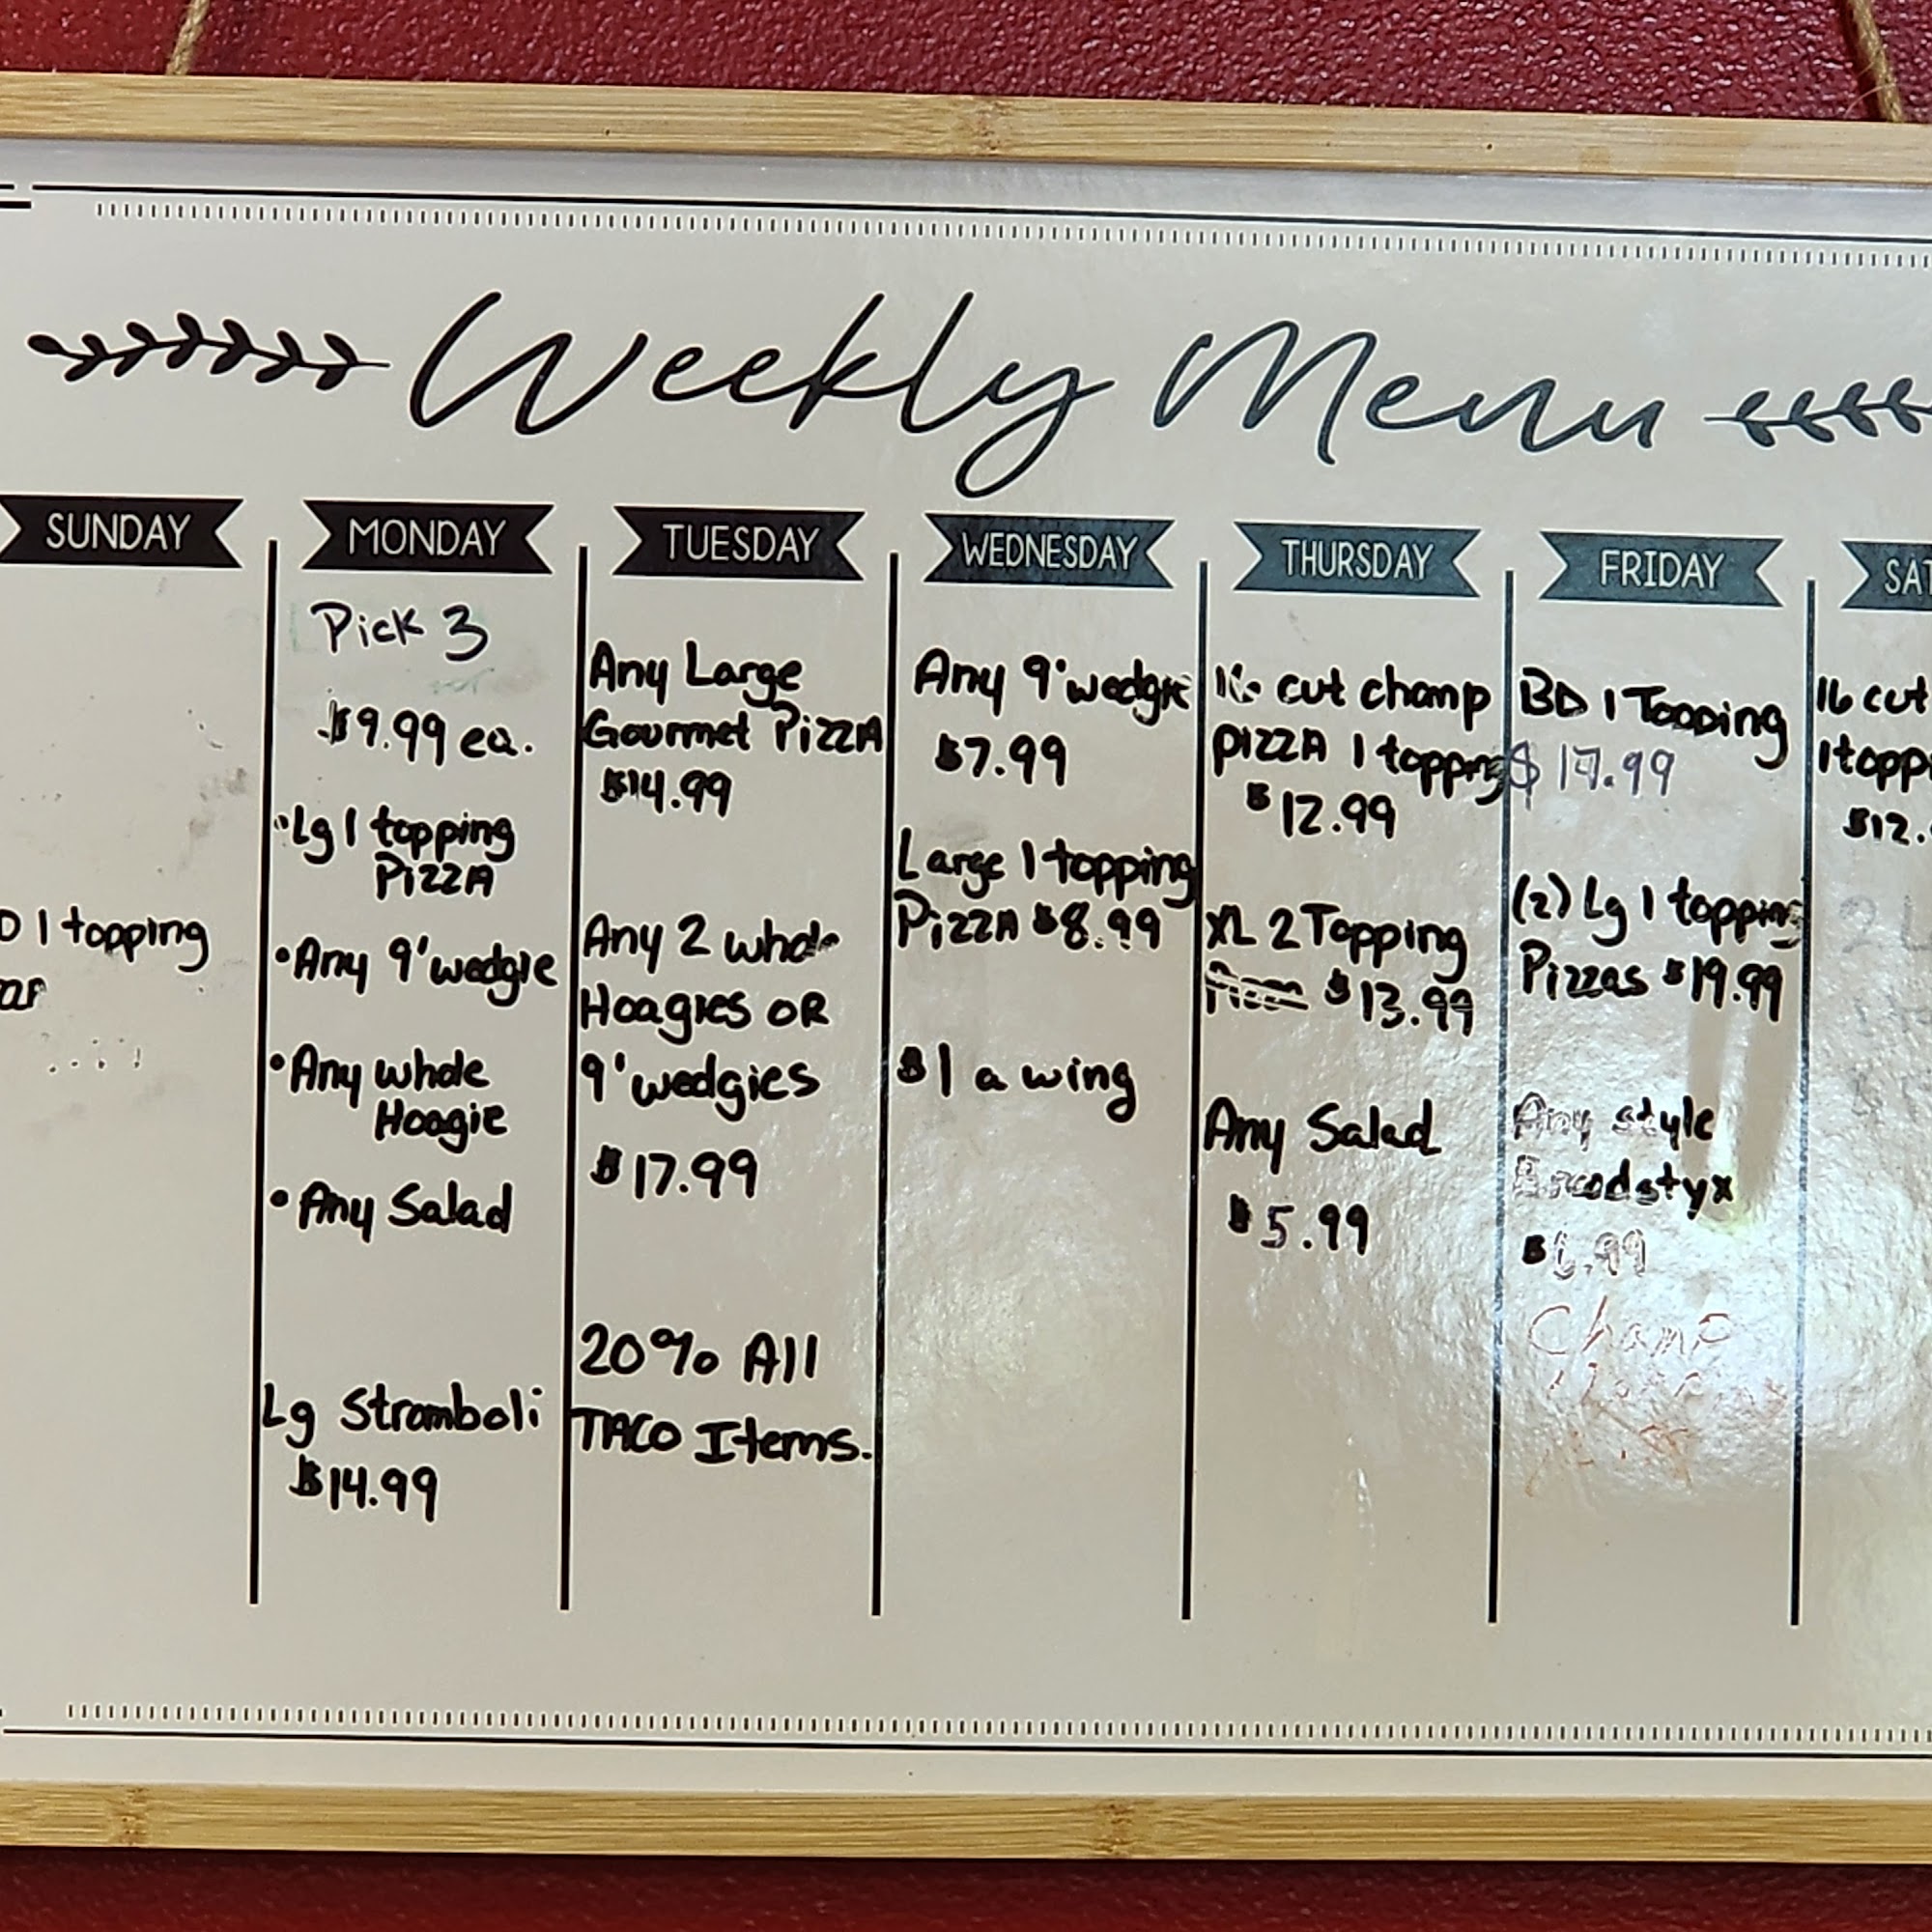 Weekly Menu
SUNDAY
1 topping
MONDAY
Pick 3
$9.99 ea.
Lg 1 topping
PIZZA
• Any 9" wedgie
• Any whole
Hoagie
• Any Salad
Lg Stromboli
$14.99
TUESDAY
Any Large
Gourmet PIZZA
$14.99
Any 2 whole
Hoagies OR
9" wedgies
$17.99
20% All
TACO Items.
WEDNESDAY
Any 9" wedgie
$7.99
Large 1 topping
PIZZA $8.99
$1 a wing
THURSDAY
16 cut champ
PIZZA 1 topping
$12.99
XL 2 Topping
$13.99
Any Salad
$5.99
FRIDAY
BD 1 Topping
$ 17.99
(2) Lg 1 topping
Pizzas $19.99
Any style
Breadstyx
Champ
SAT
16 cut
1 topp
$12.